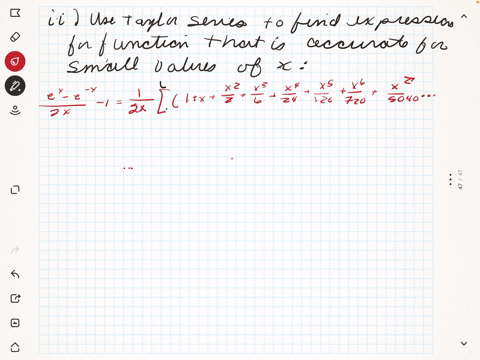 ii) Use Taylor series to find expression
for function that is accurate for
small values of x:
(e^x - e^-x)/2x - 1 = 1/2x [(1+x+x^2/2+x^3/6+x^4/24+x^5/120+x^6/720+x^7/5040...
...
47 / 47